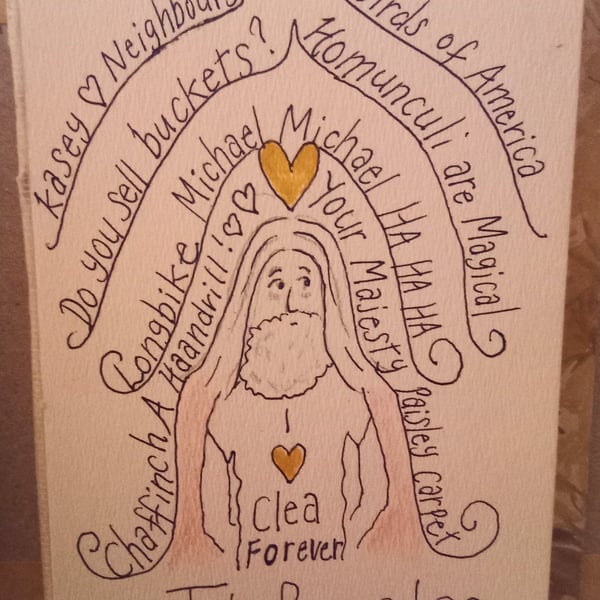 Kasey ♡ Neighbours
Birds of America
Do you sell buckets?
Homunculi are Magical
Longbike Michael
Michael HA HA HA HA
Chaffinch A Haandrill! ♡♡
Your Majesty Paisley carpet
Clea
Forever